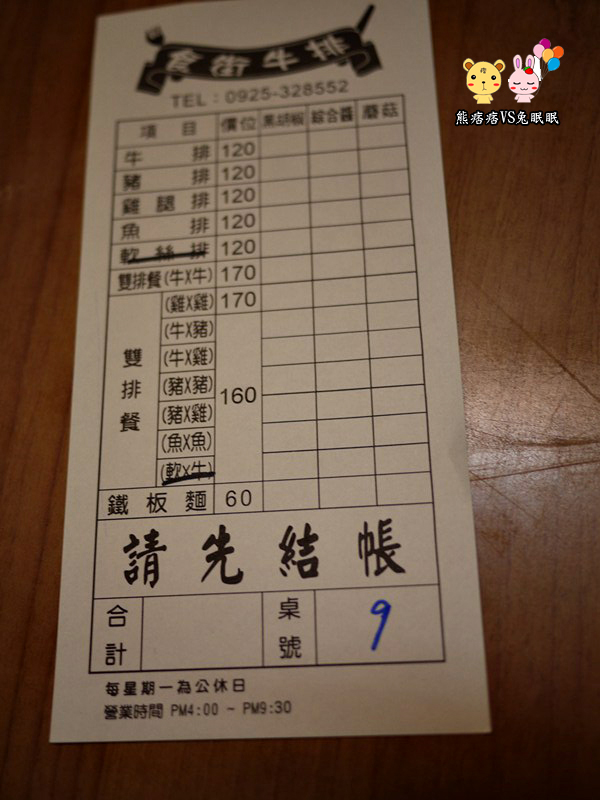 食街牛排
TEL：0925-328552
熊痞痞VS兔眠眠
項 目 價位 黑胡椒 綜合醬 蘑菇
牛 排 120
豬 排 120
雞 腿 排 120
魚 排 120
軟 絲 排 120
雙排餐(牛X牛) 170
(雞X雞) 170
(牛X豬)
雙排餐 (牛X雞)
(豬X豬) 160
(豬X雞)
(魚X魚)
(軟X牛)
鐵 板 麵 60
請先結帳
合計 桌號 9
每星期一為公休日
營業時間 PM4:00 ~ PM9:30